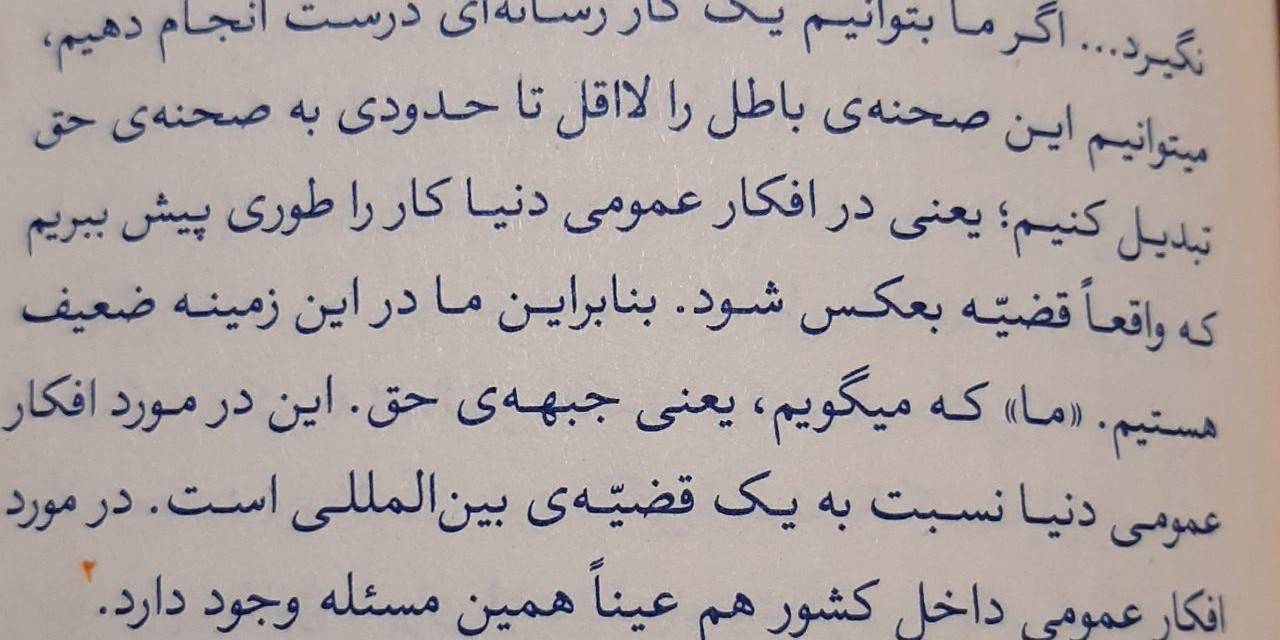 نگیرد... اگر ما بتوانیم یک کار رسانه‌ای درست انجام دهیم،
میتوانیم این صحنه‌ی باطل را لااقل تا حدودی به صحنه‌ی حق
تبدیل کنیم؛ یعنی در افکار عمومی دنیا کار را طوری پیش ببریم
که واقعاً قضیّه بعکس شود. بنابراین ما در این زمینه ضعیف
هستیم. «ما» که میگویم، یعنی جبهه‌ی حق. این در مورد افکار
عمومی دنیا نسبت به یک قضیّه‌ی بین‌المللی است. در مورد
افکار عمومی داخل کشور هم عیناً همین مسئله وجود دارد.۲